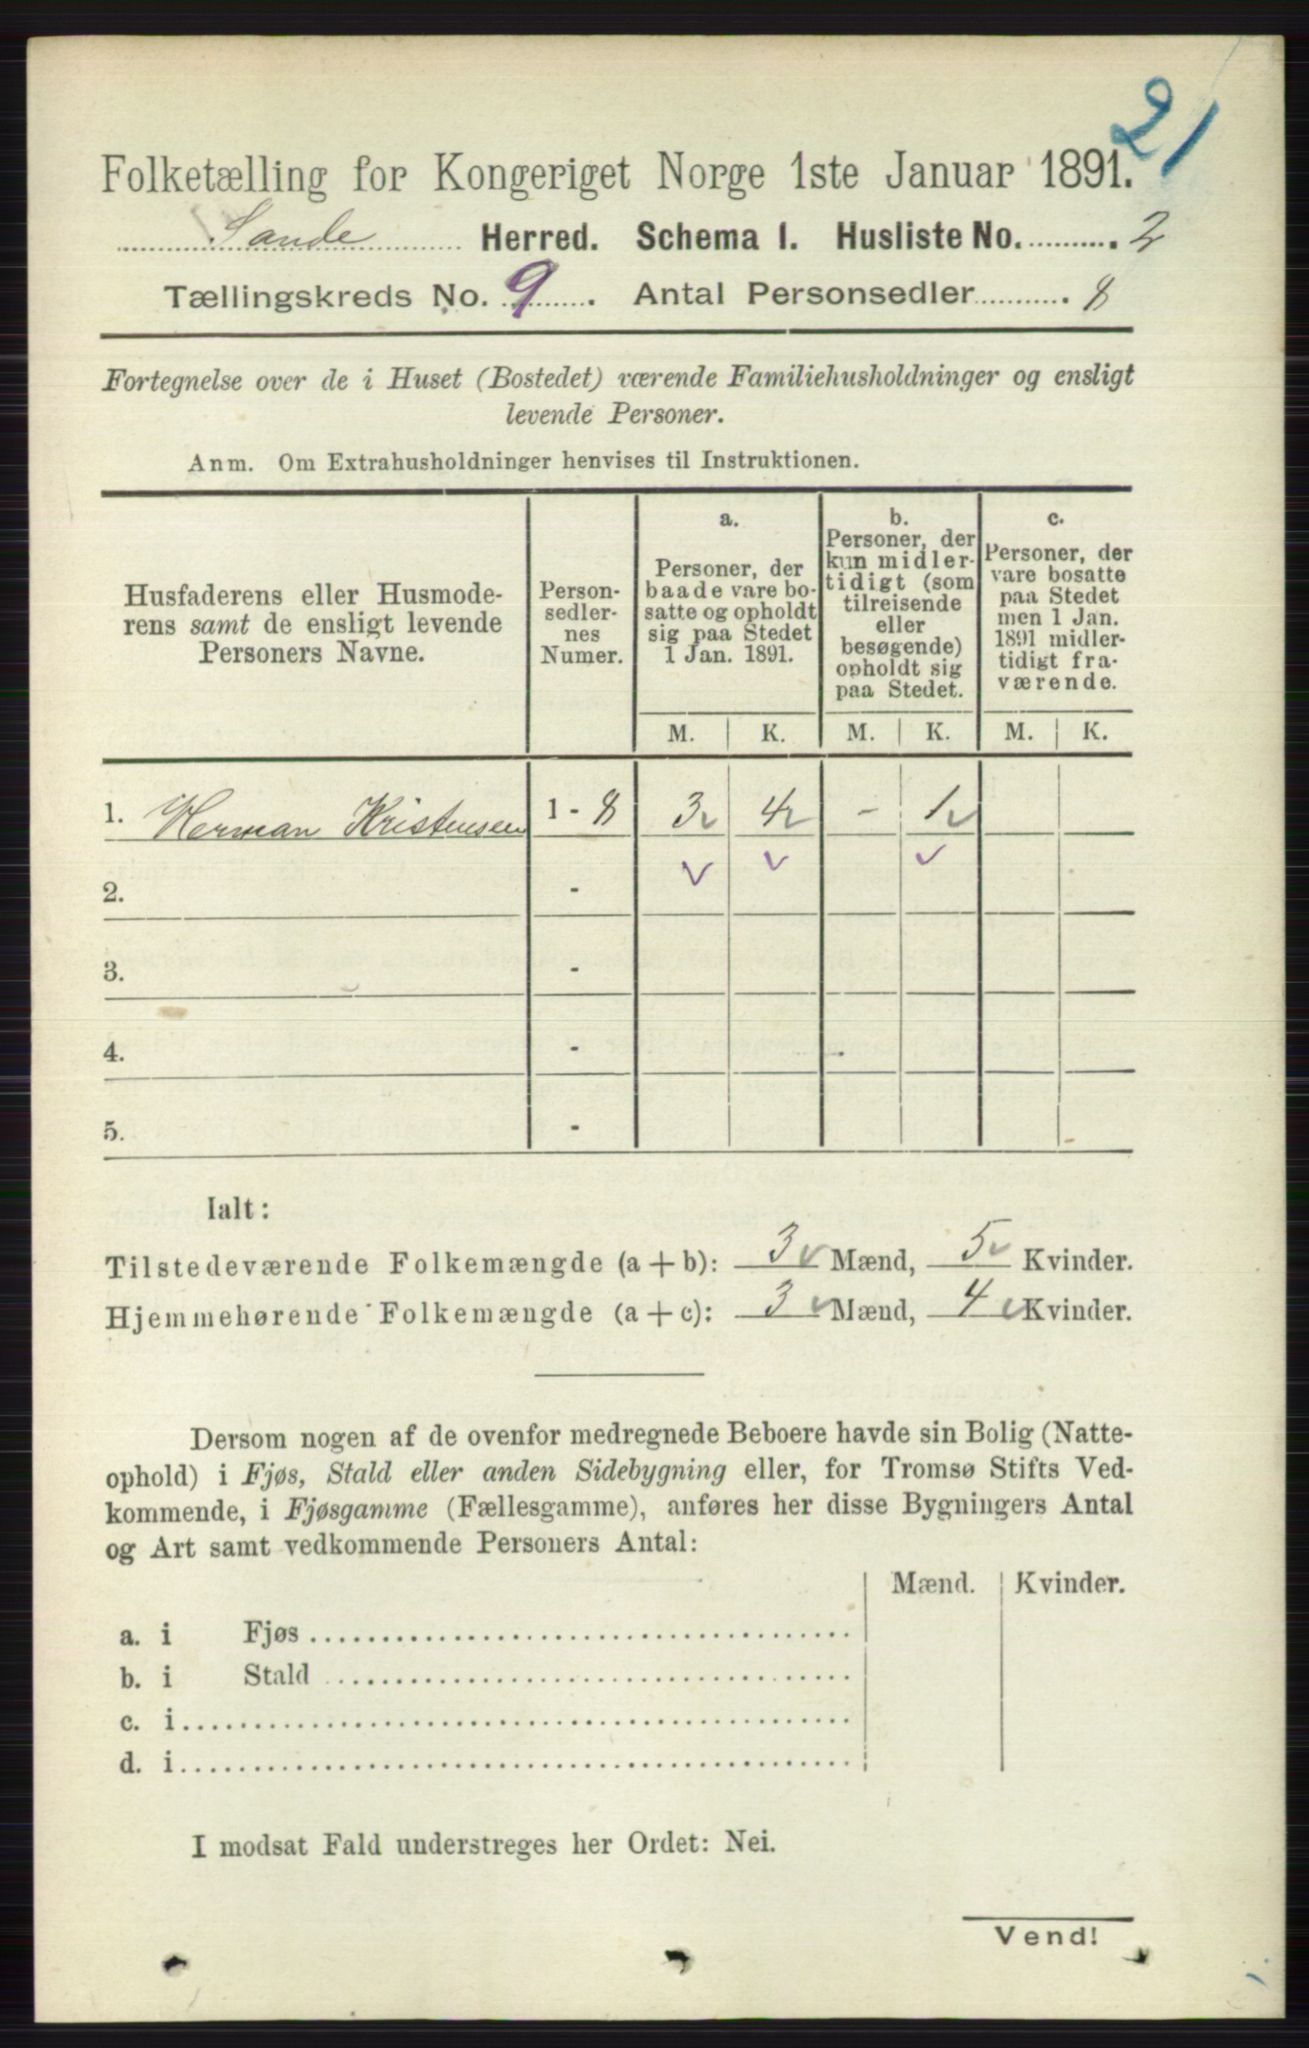 21
Folketælling for Kongeriget Norge 1ste Januar 1891.
Sande Herred. Schema 1. Husliste No. 2
Tællingskreds No. 9. Antal Personsedler 8
Fortegnelse over de i Huset (Bostedet) værende Familiehusholdninger og ensligt
levende Personer.
Anm. Om Extrahusholdninger henvises til Instruktionen.
Husfaderens eller Husmode-
rens samt de ensligt levende
Personers Navne.
Person-
sedler-
nes
Numer.
a.
Personer, der
baade vare bo-
satte og opholdt
sig paa Stedet
1 Jan. 1891.
b.
Personer, der
kun midler-
tidigt (som
tilreisende
eller
besøgende)
opholdt sig
paa Stedet.
c.
Personer, der
vare bosatte
paa Stedet
men 1 Jan.
1891 midler-
tidigt fra-
værende.
M. K. M. K. M. K.
1. Herman Kristensen 1 - 8 3 4 - 1
2. -
3. -
4. -
5. -
Ialt:
Tilstedeværende Folkemængde (a + b): 3 Mænd, 5 Kvinder.
Hjemmehørende Folkemængde (a + c): 3 Mænd, 4 Kvinder.
Dersom nogen af de ovenfor medregnede Beboere havde sin Bolig (Natte-
ophold) i Fjøs, Stald eller anden Sidebygning eller, for Tromsø Stifts Ved-
kommende, i Fjøsgamme (Fællesgamme), anføres her disse Bygningers Antal
og Art samt vedkommende Personers Antal:
Mænd. Kvinder.
a. i Fjøs
b. i Stald
c. i
d. i
I modsat Fald understreges her Ordet: Nei.
Vend!